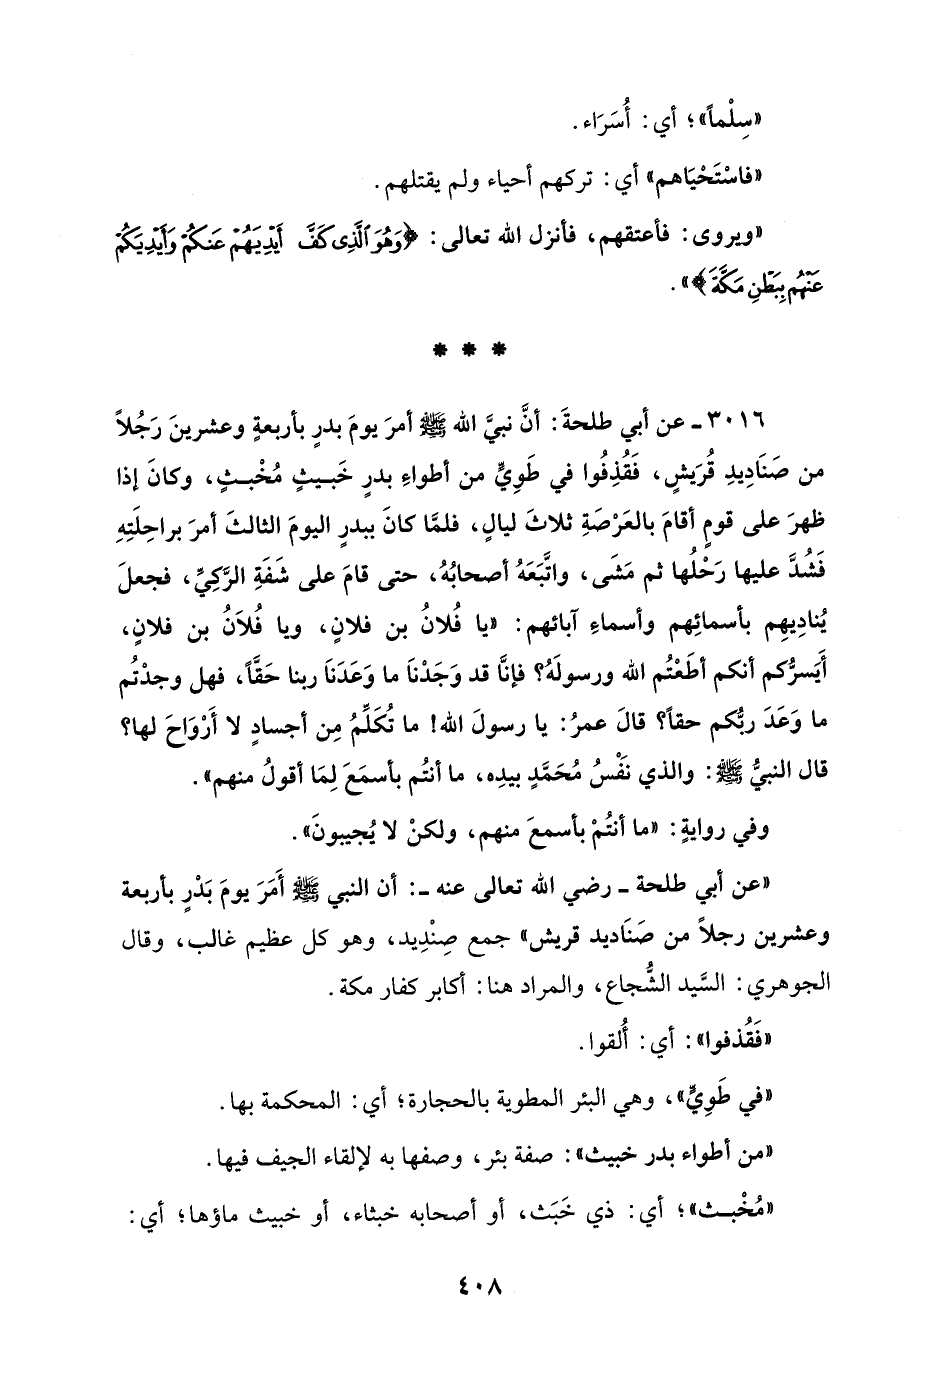 «سِلْماً»؛ أي: أُسَرَاء.
«فاسْتَحْيَاهم» أي: تركهم أحياء ولم يقتلهم.
«ويروى: فأعتقهم، فأنزل الله تعالى: ﴿وَهُوَ ٱلَّذِى كَفَّ أَيْدِيَهُمْ عَنكُمْ وَأَيْدِيَكُمْ
عَنْهُم بِبَطْنِ مَكَّةَ﴾».
* * *
٣٠١٦ ـ عن أبي طلحةَ: أنَّ نبيَّ الله ﷺ أمرَ يومَ بدرٍ بأربعةٍ وعشرينَ رَجُلاً
من صَنَادِيدِ قُرَيشٍ، فَقُذِفُوا في طَوِيٍّ من أطواءِ بدرٍ خَبيثٍ مُخْبثٍ، وكانَ إذا
ظهرَ على قومٍ أقامَ بالعَرْصَةِ ثلاثَ ليالٍ، فلمَّا كانَ ببدرٍ اليومَ الثالثَ أمرَ براحِلَتِهِ
فَشُدَّ عليها رَحْلُها ثم مَشَى، واتَّبَعَهُ أصحابُهُ، حتى قامَ على شَفَةِ الرَّكِيِّ، فجعلَ
يُنادِيهِم بأسمائِهم وأسماءِ آبائهم: «يا فُلانُ بن فلانٍ، ويا فُلاَنُ بن فلانٍ،
أَيَسرُّكم أنكم أطَعْتُم الله ورسولَهُ؟ فإنَّا قد وَجَدْنَا ما وَعَدَنَا ربنا حَقَّاً، فهل وجدْتُم
ما وَعَدَ ربُّكم حقاً؟ قالَ عمرُ: يا رسولَ الله! ما تُكَلِّمُ مِن أجسادٍ لا أرْوَاحَ لها؟
قال النبيُّ ﷺ: والذي نَفْسُ مُحَمَّدٍ بيدِه، ما أنتُم بأسمَعَ لِمَا أقولُ منهم».
وفي روايةٍ: «ما أنتُمْ بأسمعَ منهم، ولكنْ لا يُجيبونَ».
«عن أبي طلحة ـ رضي الله تعالى عنه ـ: أن النبي ﷺ أَمَرَ يومَ بَدْرٍ بأربعة
وعشرين رجلاً من صَنَاديد قريش» جمع صِنْدِيد، وهو كل عظيم غالب، وقال
الجوهري: السَّيد الشُّجاع، والمراد هنا: أكابر كفار مكة.
«فَقُذفوا»: أي: أُلقوا.
«في طَوِيٍّ»، وهي البئر المطوية بالحجارة؛ أي: المحكمة بها.
«من أطواء بدر خبيث»: صفة بئر، وصفها به لإلقاء الجيف فيها.
«مُخْبث»؛ أي: ذي خَبَث، أو أصحابه خبثاء، أو خبيث ماؤها؛ أي:
٤٠٨